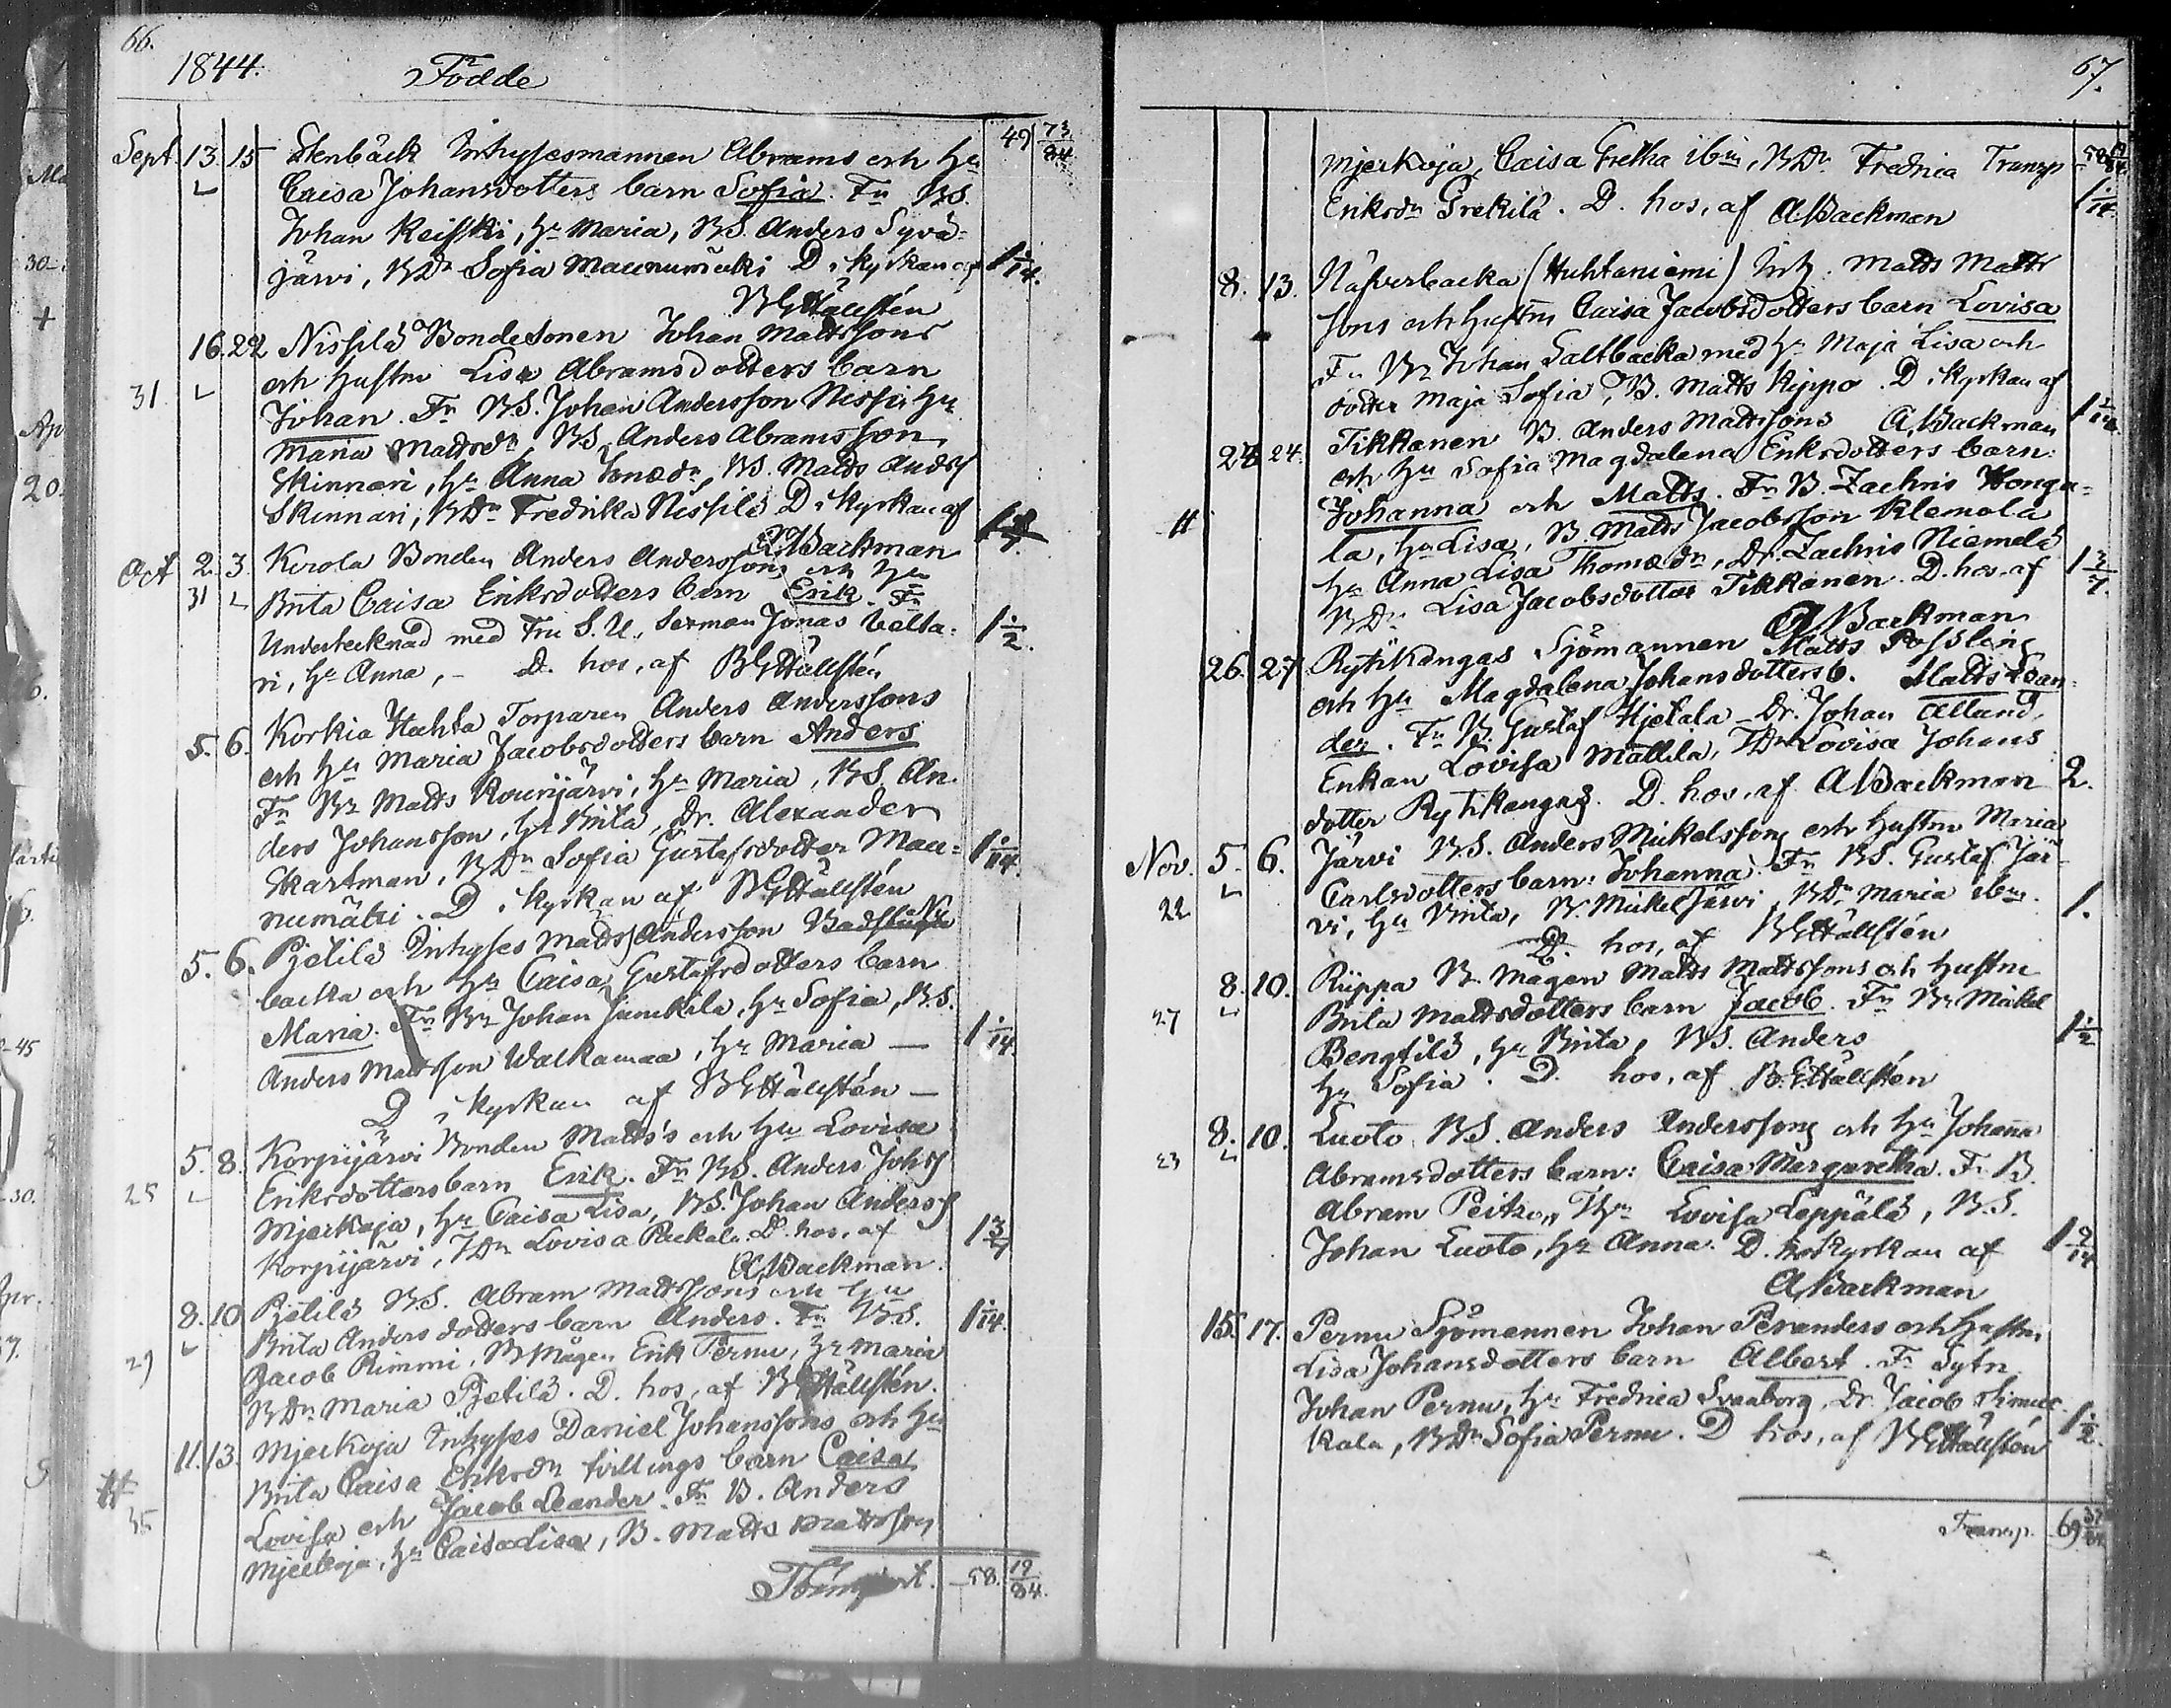 66.
1844. Födde
Sept. 13. 15 Stenbäck Inhysesmannen Abrams och Hu 49 73/84
Caisa Johansdotters barn Sofia. Fr BS.
Johan Keiski, Hu Maria, BS. Anders Syvä-
järvi, BDr Sofia Maunumäki D. i kyrkan af 1 1/14.
BGHällstén
16. 22 Nissilä Bondesonen Johan Mattssons
31 och hustru Lisa Abramsdotters barn
Johan. Fr BS. Johan Andersson Nissi, Hu
Maria Mattsdr, BS. Anders Abramsson
Skinnari, Hu Anna Jonædr, BS. Matts Anders
Skinnari, BDr Fredrika Nissilä D. i kyrkan af
A. Backman
Oct 2. 3. Kerola Bonden Anders Anderssons och Hu
31 Brita Caisa Eriksdotters barn Erik. Fr
Undertecknad med Fru S. U., Sexman Jonas Velta- 1 1/2.
ri, Hu Anna, - D. hos, af BGHällstén
5. 6. Korkia Hahta Torparen Anders Anderssons
och Hu Maria Jacobsdotters barn Anders
Fr Br Matts Kounijärvi, Hu Maria, BS. An-
ders Johansson, Hu Brita, Dr. Alexander
Skartman, BDr Sofia Gustafsdotter Mau- 1 1/14.
numäki. D. i kyrkan af BGHällstén
5. 6. Pjetilä Inhyses Matts Andersson Badstugu
backa och Hu Caisa Gustafsdotters barn
Maria. Fr Br Johan Junkkila, Hu Sofia, BS.
Anders Mattsson Walkamaa, Hu Maria — 1 1/14.
D i kyrkan af BGHällstén —
5. 8. Korpijärvi Bonden Matts's och Hu Lovisa
25 Eriksdotters barn Erik. Fr BS. Anders Johs
Mjerkoja, Hu Caisa Lisa, BS. Johan Anders 1 3/7
Korpijärvi, TDr Lovisa Raekala D. hos, af
A. Backman.
8. 10 Pjetilä BS. Abram Mattssons och Hu
Brita Andersdotters barn Anders. Fr BS. 1 1/14.
29 Jacob Rimmi, B. Mågen Erik Pernu, Hu Maria
BDr Maria Pjetilä. D. hos, af BGHällstén.
11. 13. Mjerkoja Inhyses Daniel Johanssons och Hu
Brita Caisa Eriksdr tvillings barn Caisa
Lovisa och Jacob Leander. Fr B. Anders
Mjerkoja, Hu Caisa Lisa, B. Matts Mattsson
Transport. 58. 19/84.
67.
Mjerkoja, Caisa Gretha ibm, BDr. Fredrica Transp 58 19/84
Eriksdr Grekilä. D. hos, af A. Backman 1 1/14
8. 13. Näfverbacka (Huhtaniemi) Inh. Matts Matts
sons och hustru Caisa Jacobsdotters barn Lovisa
Fr Br Johan Saltbacka med Hu Maja Lisa och
dotter Maja Sofia, B. Matts Kippo. D. i kyrkan af
24 24. Tikkanen B. Anders Mattssons A. Backman
och Hu Sofia Magdalena Eriksdotters barn:
Johanna och Matts. Fr B. Zachris Honga-
la, Hu Lisa, B. Matts Jacobsson Klemola
Hu Anna Lisa Thomædr, Dr. Zachris Niemelä 1 3/7.
BDr Lisa Jacobsdotter Tikkanen. D. hos, af
A. Backman
26. 27. Rytikangas Sjömannen Matts Rossling
och Hu Magdalena Johansdotters b. Matts Lean-
der. Fr B. Gustaf Hjetala Dr. Johan Allund,
Enkan Lovisa Mattila, TDr Lovisa Johans
dotter Rytikangas. D. hos, af A. Backman 2.
Nov. 5. 6. Järvi BS. Anders Mickelssons och hustru Maria
Carlsdotters barn: Johanna. Fr BS. Gustaf Jär
22 vi, Hu Brita, B. Mickel Järvi, BDr Maria ibm. 1.
D. hos, af BGHällstén
8. 10. Riippa B. Mågen Matts Mattssons och hustru
27 Brita Mattsdotters barn Jacob. Fr Br Mickel
Bengtilä, Hu Brita, BS. Anders 1 1/2
Hu Sofia. D. hos, af BGHällstén
8. 10. Luoto BS. Anders Anderssons och Hu Johanna
23 Abramsdotters barn: Caisa Margaretha. Fr B.
Abram Peitzo, Lovisa Leppälä, BS.
Johan Luoto, Hu Anna. D. kyrkan af
A. Backman
15. 17. Pernu Sjömannen Johan Peranders och hustru
Lisa Johansdotters barn Albert. Fr Sytn.
Johan Pernu, Hu Fredrica Svanborg, Dr. Jacob
kala, BDr Sofia Pernu. D hos, af BGHällstén 1 1/2.
Transp. 69